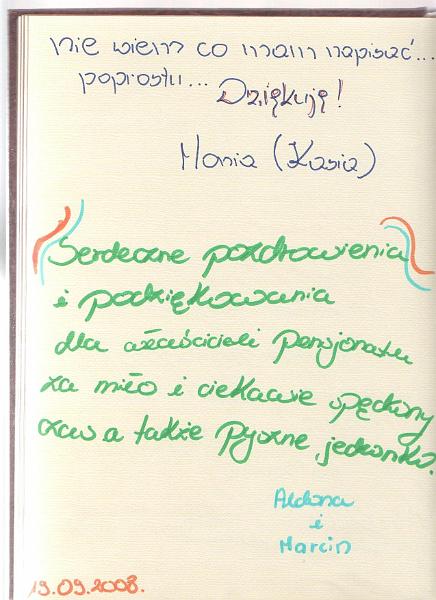 nie wiem co mam napisać...
poprostu... Dziękuję!
Monia (Kasia)
Serdeczne pozdrowienia
i podziękowania
dla właścicieli Pensjonatu
za miło i ciekawie spędzony
czas a także Pyszne jedzonko.
Aldona
i
Marcin
19.09.2008.